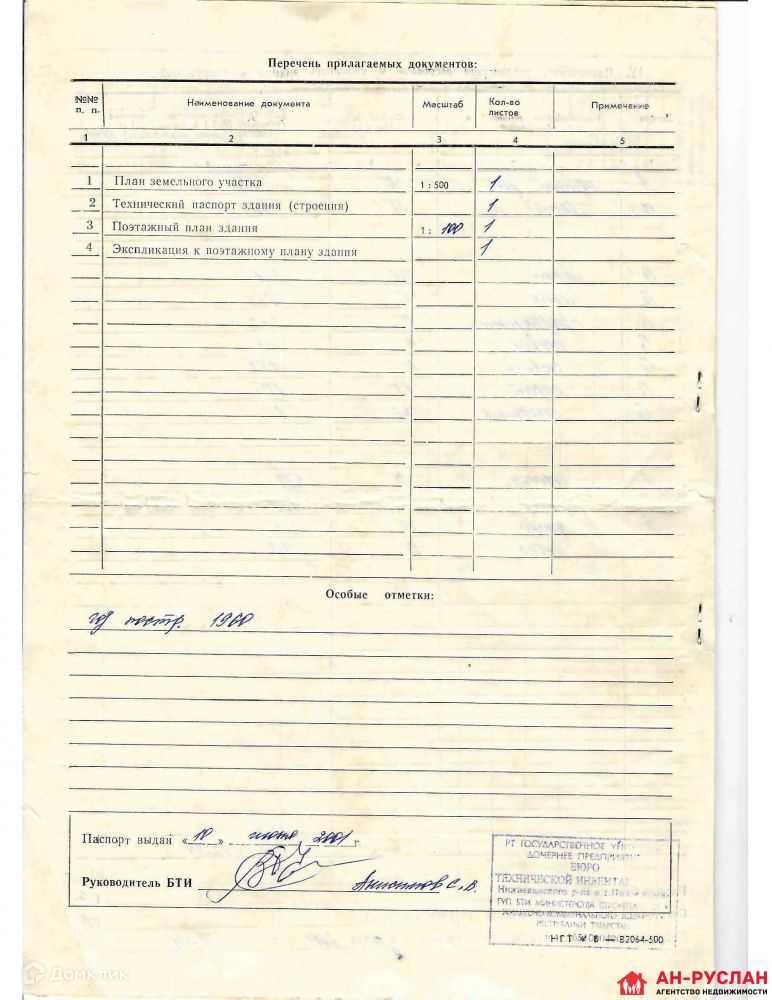 Перечень прилагаемых документов:
№№ п. п. Наименование документа Масштаб Кол-во листов Примечание
1 2 3 4 5
1 План земельного участка 1 : 500 1
2 Технический паспорт здания (строения) 1
3 Поэтажный план здания 1 : 100 1
4 Экспликация к поэтажному плану здания 1
Особые отметки:
год постр. 1960
Паспорт выдан « 10 » 2001 г
Руководитель БТИ С. В.
РТ ГОСУДАРСТВЕННОЕ
ДОЧЕРНЕЕ ПРЕДПРИЯТИ
БЮРО
ТЕХНИЧЕСКОЙ ИНВЕНТАР
ГУП БТИ МИНИСТЕРСТВА
РЕСПУБЛИКИ ТАТАРСТАН
НГТ В2064-500
Домклик
АН-РУСЛАН
АГЕНТСТВО НЕДВИЖИМОСТИ